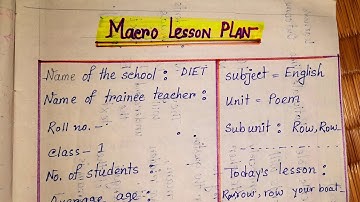 Maero Lesson PLAN
Name of the school : DIET
Name of trainee teacher :
Roll no. -
Class - 1
No. of students :
Average age :
subject = English
Unit = Poem
Sub unit : Row, Row
Today's lesson :
Row, row your boat